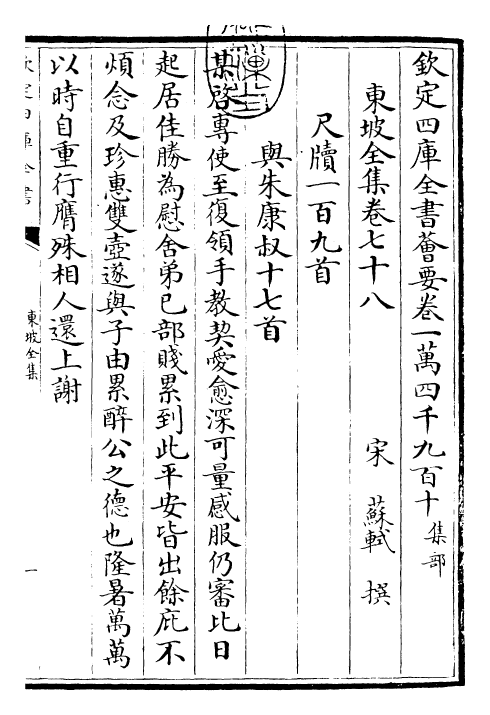 欽定四庫全書薈要卷一萬四千九百十 集部
東坡全集卷七十八
宋 蘇軾 撰
尺牘一百九首
與朱康叔十七首
某啓專使至復領手教契愛愈深可量感服仍審比日
起居佳勝為慰舍弟已部賤累到此平安皆出餘庇不
煩念及珍惠雙壺遂與子由累醉公之德也隆暑萬萬
以時自重行膺殊相人還上謝
欽定四庫全書
東坡全集
一